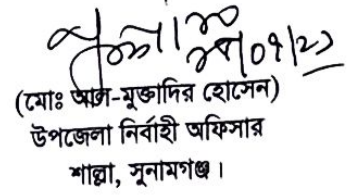 (মোঃ আল-মুক্তাদির হোসেন)
উপজেলা নির্বাহী অফিসার
শাল্লা, সুনামগঞ্জ।